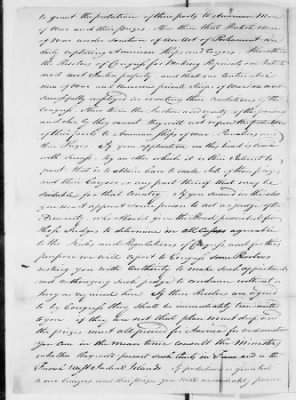 to grant the protection of their ports to American Men
of War and their Prizes. Shew them that British Men
of War under Sanction of an Act of Parliament are
daily capturing American Ships and Cargoes. Shew them
the Resolves of Congress for Making Reprizals on British
and West India property, and that our Continental
Men of War and Numerous private Ships of War are most
successfully employed in executing these resolutions of the
Congress. Shew them the Justice and equity of this proceeding
and ask if they cannot, if they will not grant the protection
of their ports to American Ships of War, Privateers and
their Prizes. If your application on this head is crowned
with success, try another which it is their Interest to
grant, that is to obtain leave to make Sale of those prizes
and their Cargoes or any part thereof that may be
suitable for that Country. If you succeed in this also
you must appoint some person to act as judge of the
Admiralty who should give the Bond prescribed for
those Judges to determine in all Cases agreeable
to the Rules and Regulations of Congress and for this
purpose we will report to Congress some Resolves
vesting you with Authority to make such appointment
and authorizing such Judge to condemn without a
Jury as required here. If these Resolves are agreed
to by Congress they shall be immediately transmitted
to you, if they are not that plan must drop and
the prizes must all proceed for America for condemnation
you can in the mean time consult the Ministry
whether they will permit such Courts in France and in the
French West India Islands. If protection is granted
to our Cruizers and their Prizes you will immediately procure